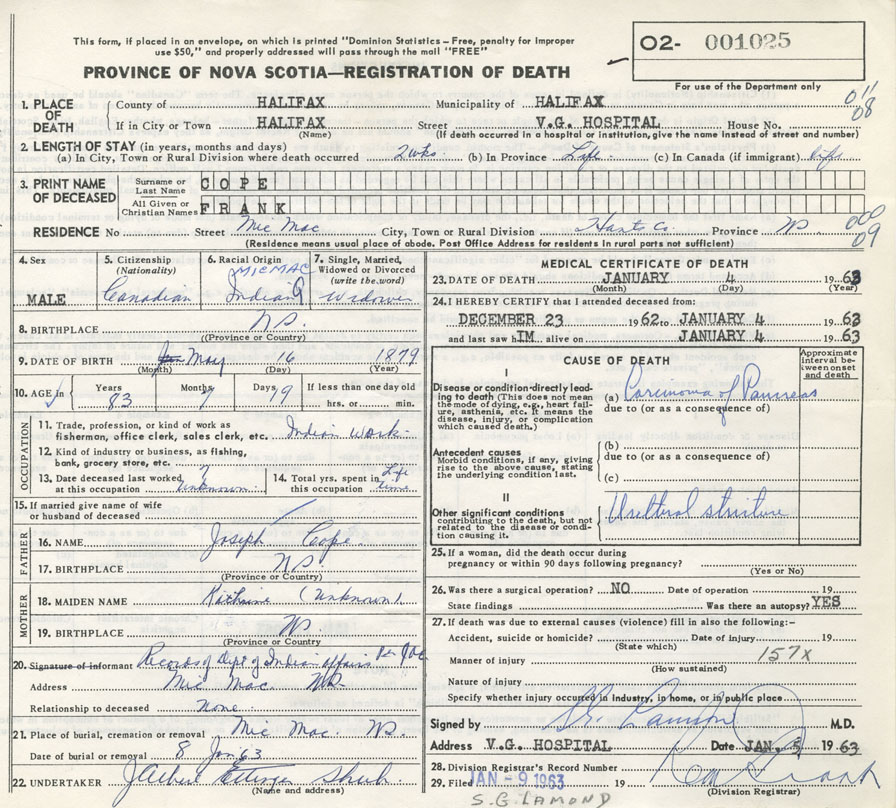 This form, if placed in an envelope, on which is printed "Dominion Statistics – Free, penalty for improper
use $50," and properly addressed will pass through the mail "FREE"
O2- 001025
For use of the Department only
PROVINCE OF NOVA SCOTIA—REGISTRATION OF DEATH
011
08
1. PLACE OF DEATH
County of HALIFAX Municipality of HALIFAX
If in City or Town HALIFAX Street V.G. HOSPITAL House No.
(Name) (If death occurred in a hospital or institution, give the name instead of street and number)
2. LENGTH OF STAY (in years, months and days)
(a) In City, Town or Rural Division where death occurred 2 wks. (b) In Province Life (c) In Canada (if immigrant) Life
3. PRINT NAME OF DECEASED
Surname or Last Name COPE
All Given or Christian Names FRANK
RESIDENCE No Street Mic Mac City, Town or Rural Division Hants Co. Province NS
000
09
(Residence means usual place of abode. Post Office Address for residents in rural parts not sufficient)
4. Sex
MALE
5. Citizenship (Nationality)
Canadian
6. Racial Origin
MICMAC
Indian
7. Single, Married, Widowed or Divorced (write the word)
Widower
8. BIRTHPLACE NS.
(Province or Country)
9. DATE OF BIRTH May 16 1879
(Month) (Day) (Year)
10. AGE in Years 83 Months 7 Days 19 If less than one day old
hrs. or min.
OCCUPATION
11. Trade, profession, or kind of work as
fisherman, office clerk, sales clerk, etc. Indian Work
12. Kind of industry or business, as fishing,
bank, grocery store, etc.
13. Date deceased last worked at this occupation ? unknown
14. Total yrs. spent in this occupation Life time
15. If married give name of wife
or husband of deceased
FATHER
16. NAME Joseph Cope
17. BIRTHPLACE NS
(Province or Country)
MOTHER
18. MAIDEN NAME Katherine (Unknown)
19. BIRTHPLACE NS.
(Province or Country)
20. Signature of informant Records of Dept of Indian Affairs Per
Address Mic Mac. NS.
Relationship to deceased None
21. Place of burial, cremation or removal Mic Mac. NS.
Date of burial or removal 8 Jan 63
22. UNDERTAKER J Albert Ettinger Shub.
(Name and address)
MEDICAL CERTIFICATE OF DEATH
23. DATE OF DEATH JANUARY 4 1963
(Month) (Day) (Year)
24. I HEREBY CERTIFY that I attended deceased from:
DECEMBER 23 1962 to JANUARY 4 1963
and last saw h IM alive on JANUARY 4 1963
CAUSE OF DEATH
Approximate interval between onset and death
I
Disease or condition directly leading to death (This does not mean the mode of dying, e.g., heart failure, asthenia, etc. It means the disease, injury, or complication which caused death.)
(a) Carcinoma of Pancreas
due to (or as a consequence of)
Antecedent causes
Morbid conditions, if any, giving rise to the above cause, stating the underlying condition last.
(b)
due to (or as a consequence of)
(c)
II
Other significant conditions contributing to the death, but not related to the disease or condition causing it.
Urethral stricture
25. If a woman, did the death occur during
pregnancy or within 90 days following pregnancy?
(Yes or No)
26. Was there a surgical operation? NO Date of operation 19
State findings Was there an autopsy? YES
27. If death was due to external causes (violence) fill in also the following:–
Accident, suicide or homicide? Date of injury 19
(State which)
157X
Manner of injury
(How sustained)
Nature of injury
Specify whether injury occurred in industry, in home, or in public place
Signed by M.D.
Address V.G. HOSPITAL Date JAN. 5 1963
28. Division Registrar's Record Number
29. Filed JAN - 9 1963 19
(Division Registrar)
S.G. LAMOND